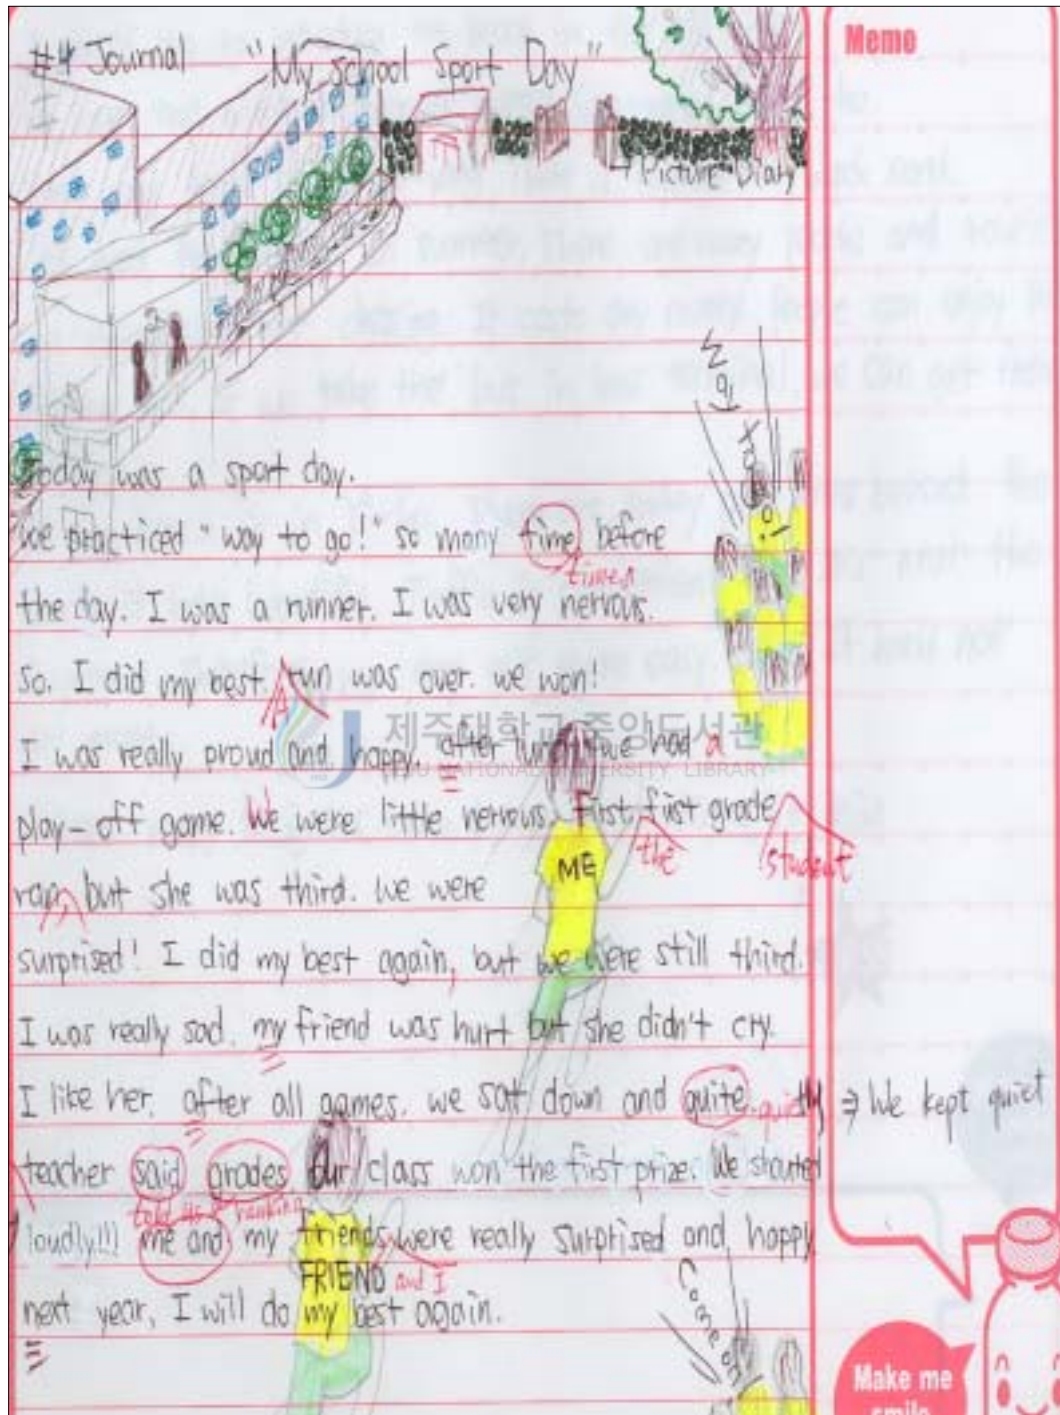 #4 Journal "My school Sport Day"
Memo
→ Picture Diary
Way to go!
Today was a sport day.
We practiced "way to go!" so many time before
times
the day. I was a runner. I was very nervous.
so. I did my best. run was over. we won!
A
제주대학교 중앙도서관
JEJU NATIONAL UNIVERSITY LIBRARY
I was really proud and happy. after lunch we had a
play-off game. We were little nervous. First, first grade
the
student
ran, but she was third. We were
ME
surprised! I did my best again, but we were still third.
I was really sad. my friend was hurt but she didn't cry.
I like her. after all games. we satt down and quite. quietly ⇒ We kept quiet
teacher said grades our class won the first prize. We shouted
told us ranking
loudly!!! me and my friends were really surprised and happy
FRIEND and I
next year, I will do my best again.
Come on
Make me
smile